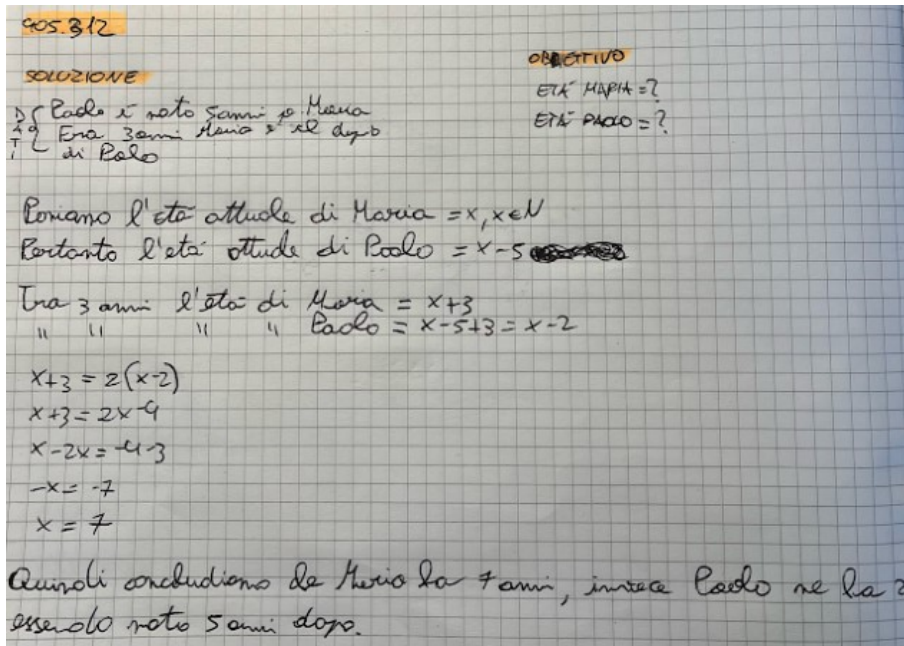 905.312
SOLUZIONE
OBIETTIVO
ETÀ MARIA = ?
ETÀ PAOLO = ?
DATI
Paolo è nato 5 anni p Maria
Era 3 anni Maria è il dopo
di Polo
Poniamo l'età attuale di Maria = x, x ∈ N
Pertanto l'età attuale di Paolo = x - 5
Tra 3 anni l'età di Maria = x+3
" " " " Paolo = x-5+3 = x-2
x+3 = 2(x-2)
x+3 = 2x-4
x-2x = -4-3
-x = -7
x = 7
Quindi concludiamo che Maria ha 7 anni, invece Paolo ne ha 2
essendo nato 5 anni dopo.